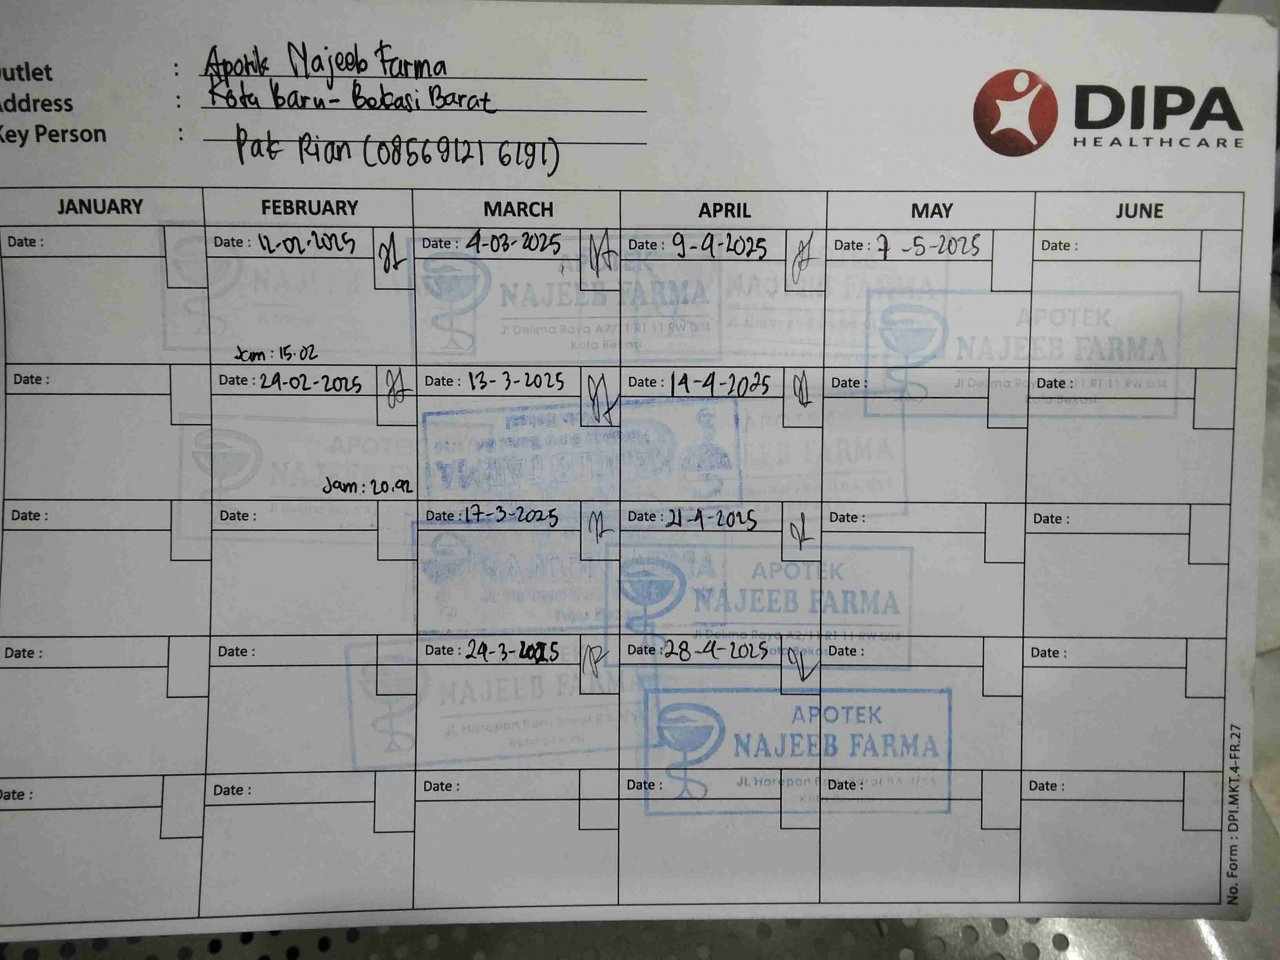 utlet : Apotik Najeeb Farma
ddress : Kota Baru - Bekasi Barat
Key Person : Pak Rian (085691216191)
DIPA
HEALTHCARE
JANUARY FEBRUARY MARCH APRIL MAY JUNE
Date : Date : 12-02-2025 Date : 4-03-2025 Date : 9-4-2025 Date : 7-5-2025 Date :
Jam : 15.02
Date : Date : 24-02-2025 Date : 13-3-2025 Date : 14-4-2025 Date : Date :
Jam : 20.42
Date : Date : Date : 17-3-2025 Date : 21-4-2025 Date : Date :
Date : Date : Date : 24-3-2025 Date : 28-4-2025 Date : Date :
Date : Date : Date : Date : Date : Date :
APOTEK
NAJEEB FARMA
APOTEK
NAJEEB FARMA
APOTEK
NAJEEB FARMA
APOTEK
NAJEEB FARMA
No. Form : DPI.MKT.4-FR.27